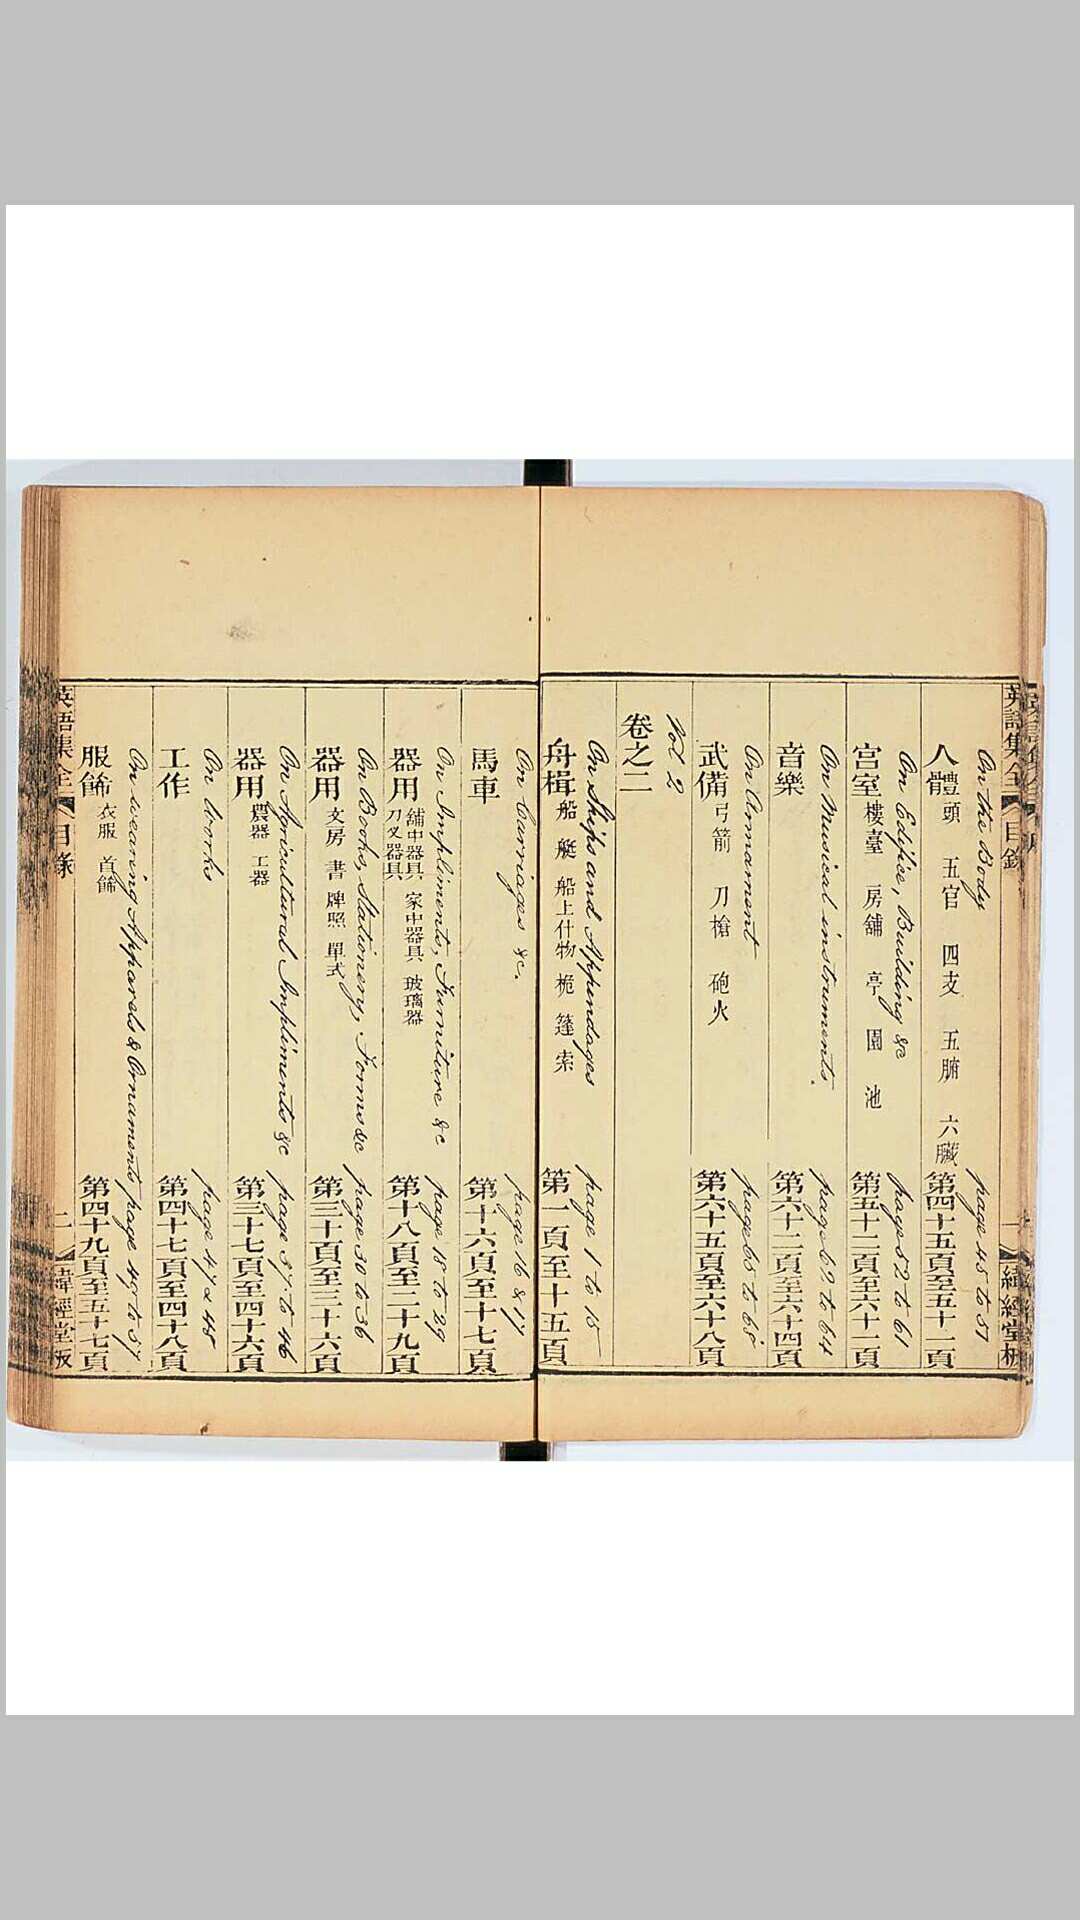 英語集全 目錄 一 緯經堂板
On the Body page 45 to 51
人體 頭 五官 四支 五腑 六臟 第四十五頁至五十一頁
On Edifice, Building &c page 52 to 61
宫室 樓臺 房舖 亭 園 池 第五十二頁至六十一頁
On Musical instruments. page 62 to 64
音樂 第六十二頁至六十四頁
On Armament page 65 to 68
武備 弓箭 刀槍 砲火 第六十五頁至六十八頁
Vol 2
卷之二
On Ships and Appendages page 1 to 15
舟楫 船 艇 船上什物 桅 篷 索 第一頁至十五頁
On Carriages &c. page 16 & 17
馬車 第十六頁至十七頁
On Impliments, Furniture &c page 18 to 29
器用 舖中器具 家中器具 玻璃器 刀叉器具 第十八頁至二十九頁
On Books, Stationery, Forms &c page 30 to 36
器用 文房 書 牌照 單式 第三十頁至三十六頁
On Agricultural Impliments &c page 37 to 46
器用 農器 工器 第三十七頁至四十六頁
On Works page 47 & 48
工作 第四十七頁至四十八頁
On weaving Apparels & Ornaments page 49 to 57
服餙 衣服 首餙 第四十九頁至五十七頁
英語集全 目錄 二 緯經堂板